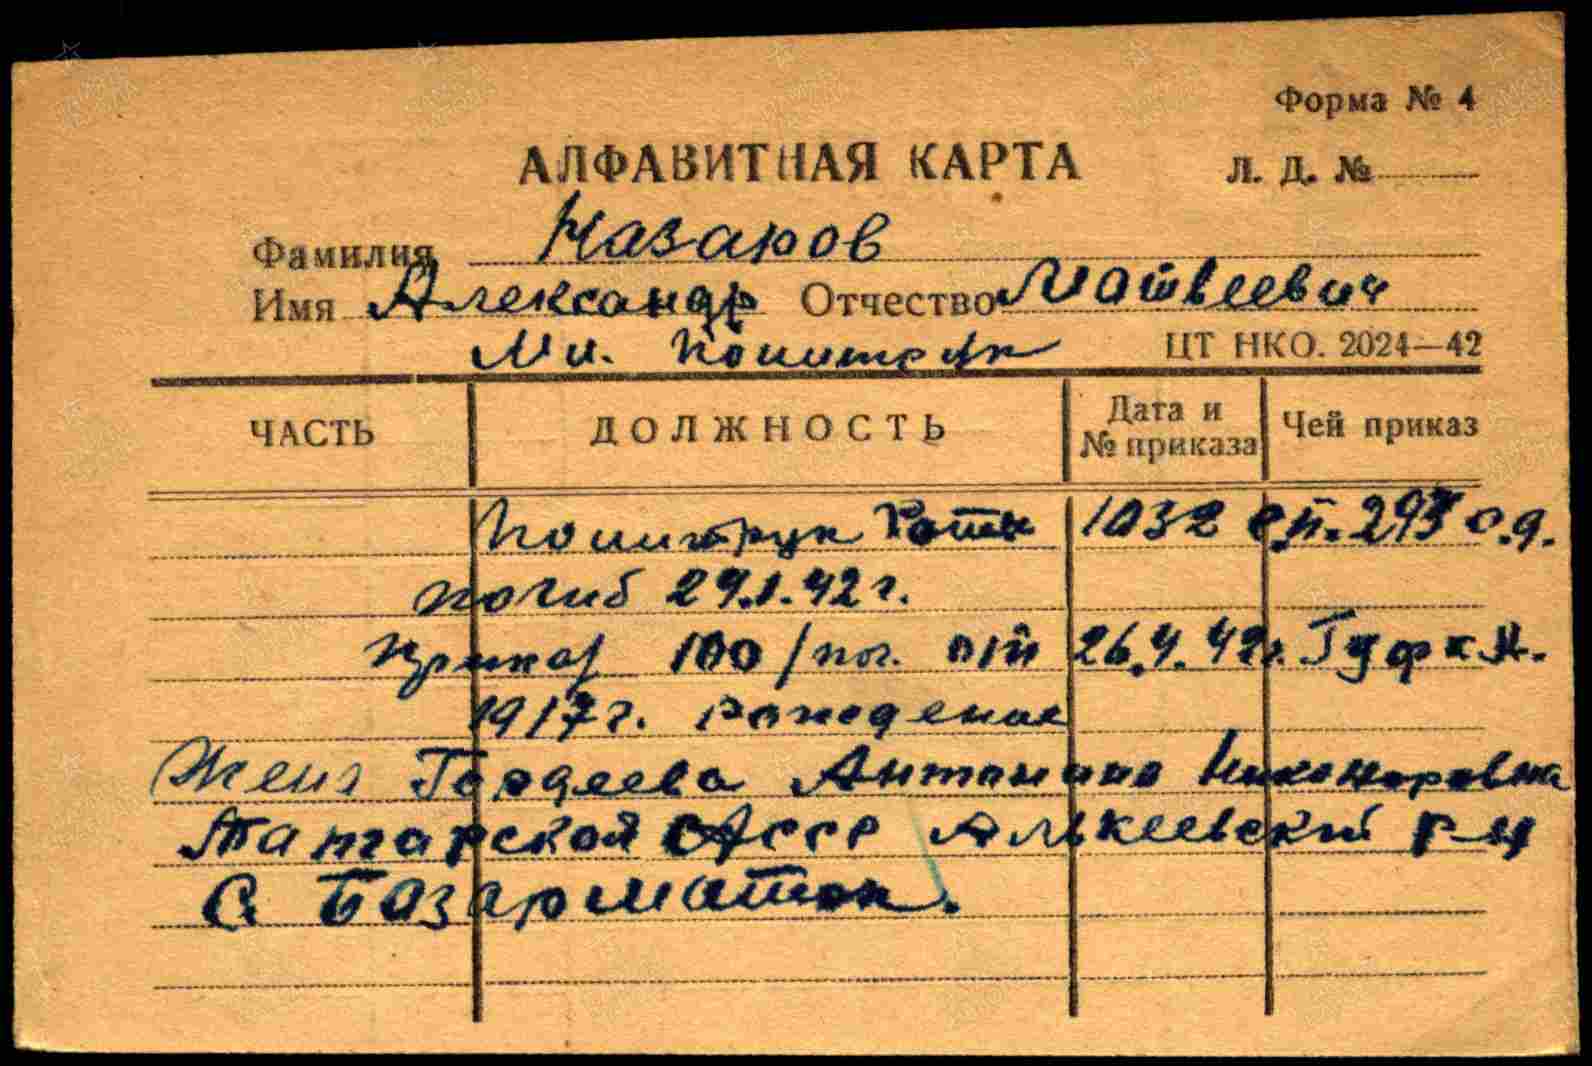 Форма № 4
АЛФАВИТНАЯ КАРТА
Л. Д. №
Фамилия Назаров
Имя Александр Отчество Матвеевич
Мл. Политрук
ЦТ НКО. 2024—42
ЧАСТЬ ДОЛЖНОСТЬ Дата и № приказа Чей приказ
Политрук Роты 1032 с.п. 293 с.д.
погиб 29.1.42 г.
Приказ 100/пог. от 26.4.42г. ГУФКА.
1917г. рождения
Жена Гордеева Антонина Никоноровна
Татарской АССР Алькеевский р-н
С. Базарматак.